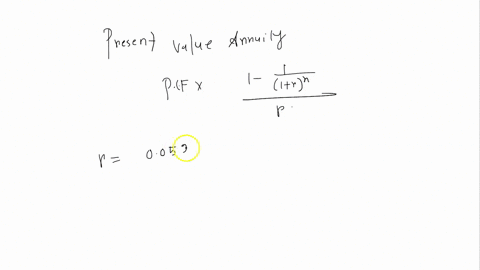 Present value Annuity
P.CF x \frac{1 - \frac{1}{(1+r)^n}}{r.}
r = 0.053